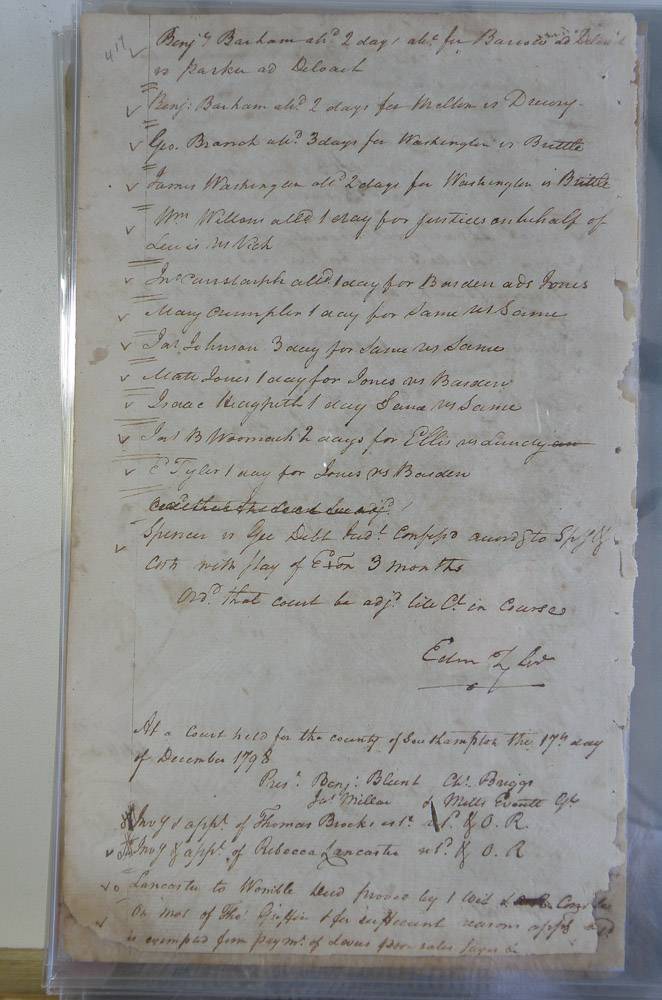 417
Benjn Barham atd 2 days atc for Barrow ad
vs Parker ad Deloach
Benj: Barham atd 2 days for Mellon vs Drewry
Geo. Branch atd 3 days for Washington vs Brittle
James Washington atd 2 days for Washington vs Brittle
Wm Willons atd 1 day for Justices on behalf of
Lewis vs Vick
Jno atd 1 day for Barden ads Jones
Mary Crumpler 1 day for Same vs Same
Jas Johnson 3 day for Same vs Same
Matt Jones 1 day for Jones vs Barden
Isaac 1 day Same vs Same
Jas B Woomack 2 days for Ellis vs Lundy
E Tyler 1 day for Jones vs Barden
Spencer vs Gee Debt Judt Confess'd accordg to Spf &
Costs with stay of Exon 3 months
Ord. that court be adjd till Ct in Course
Edm Tyler
At a Court held for the county of Southampton the 17th day
of December 1798
Prest Benj: Blunt Chs Briggs
Jas Millar & Mills Gt
Invy & appt. of Thomas Brocks est. & O. R
Invy & appt. of Rebecca Lancaster retd. & O. R
Lancaster to Womble Deed proved by 1 wit &
On mot of Tho: Griffin & for sufficient reasons appg
is exempted from paymt. of Levies poor rates